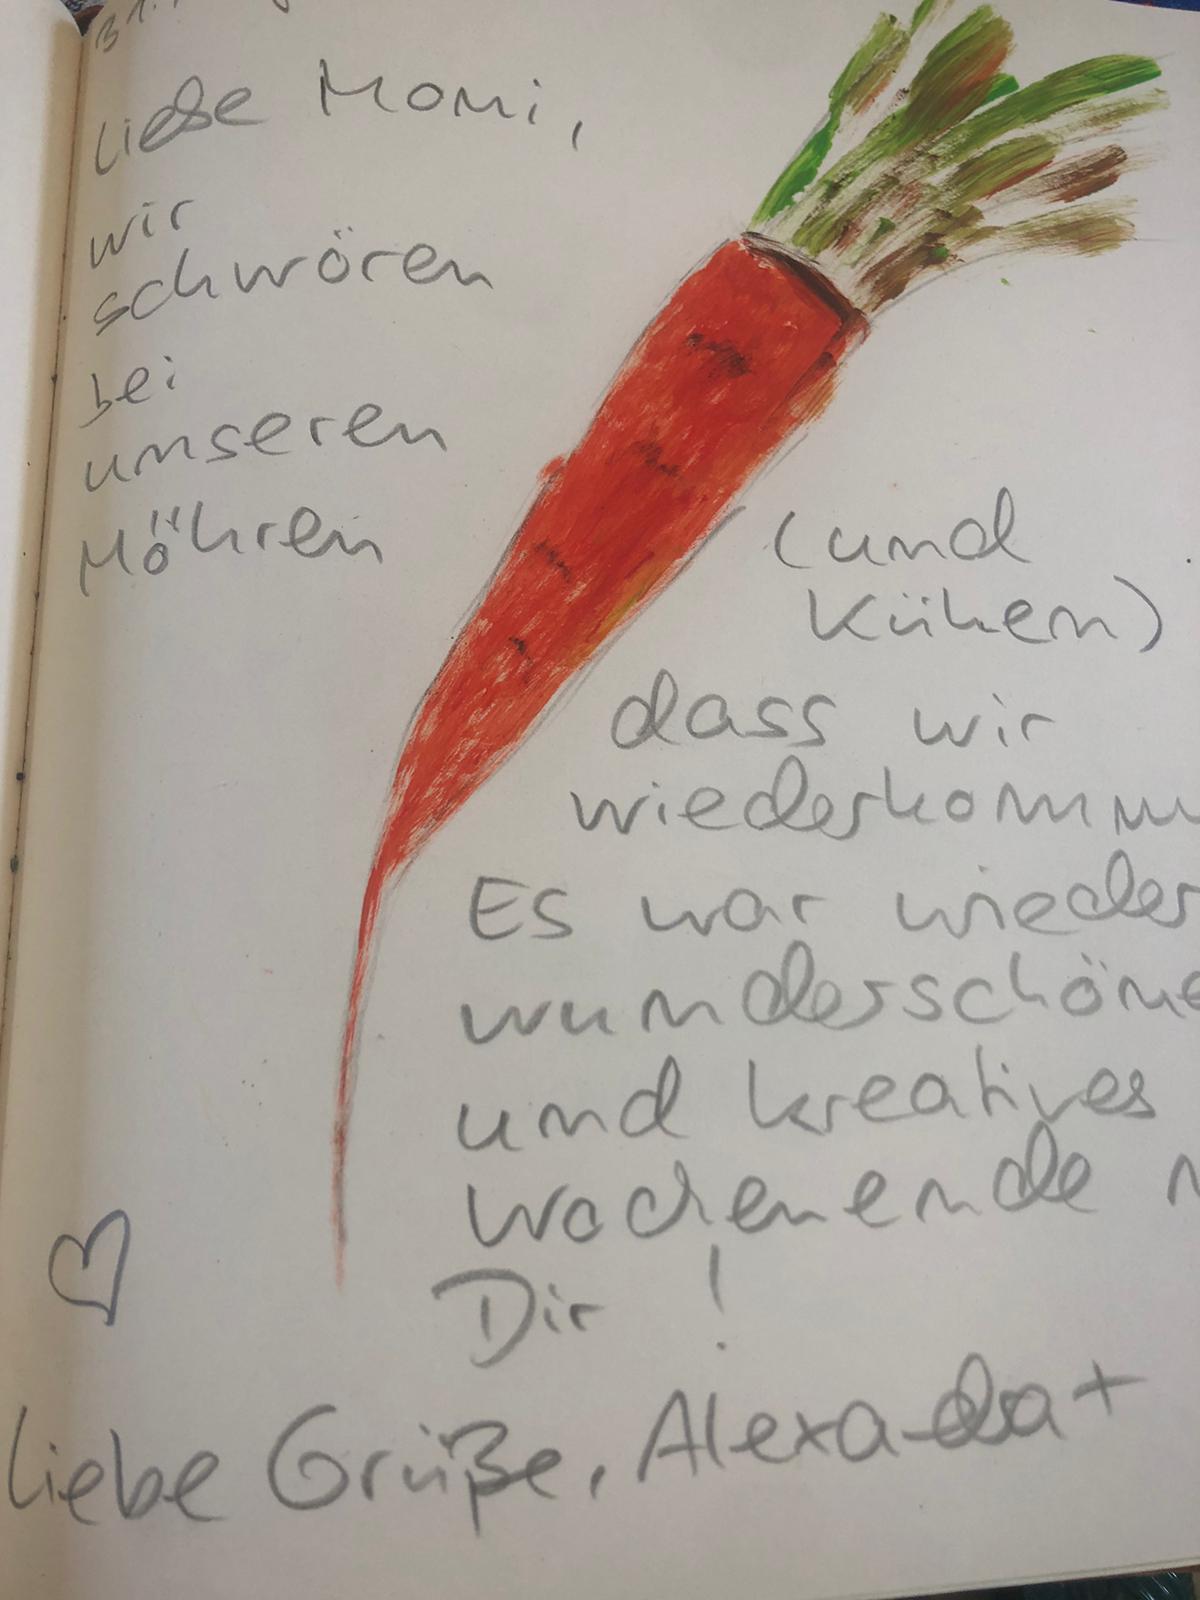 31.
Liebe Momi,
wir
schwören
bei
unseren
Möhren
(und
Kühen)
dass wir
wiederkomm
Es war wieder
wunderschöne
und kreatives
Wochenende
Dir !
Liebe Grüße, Alexandra +